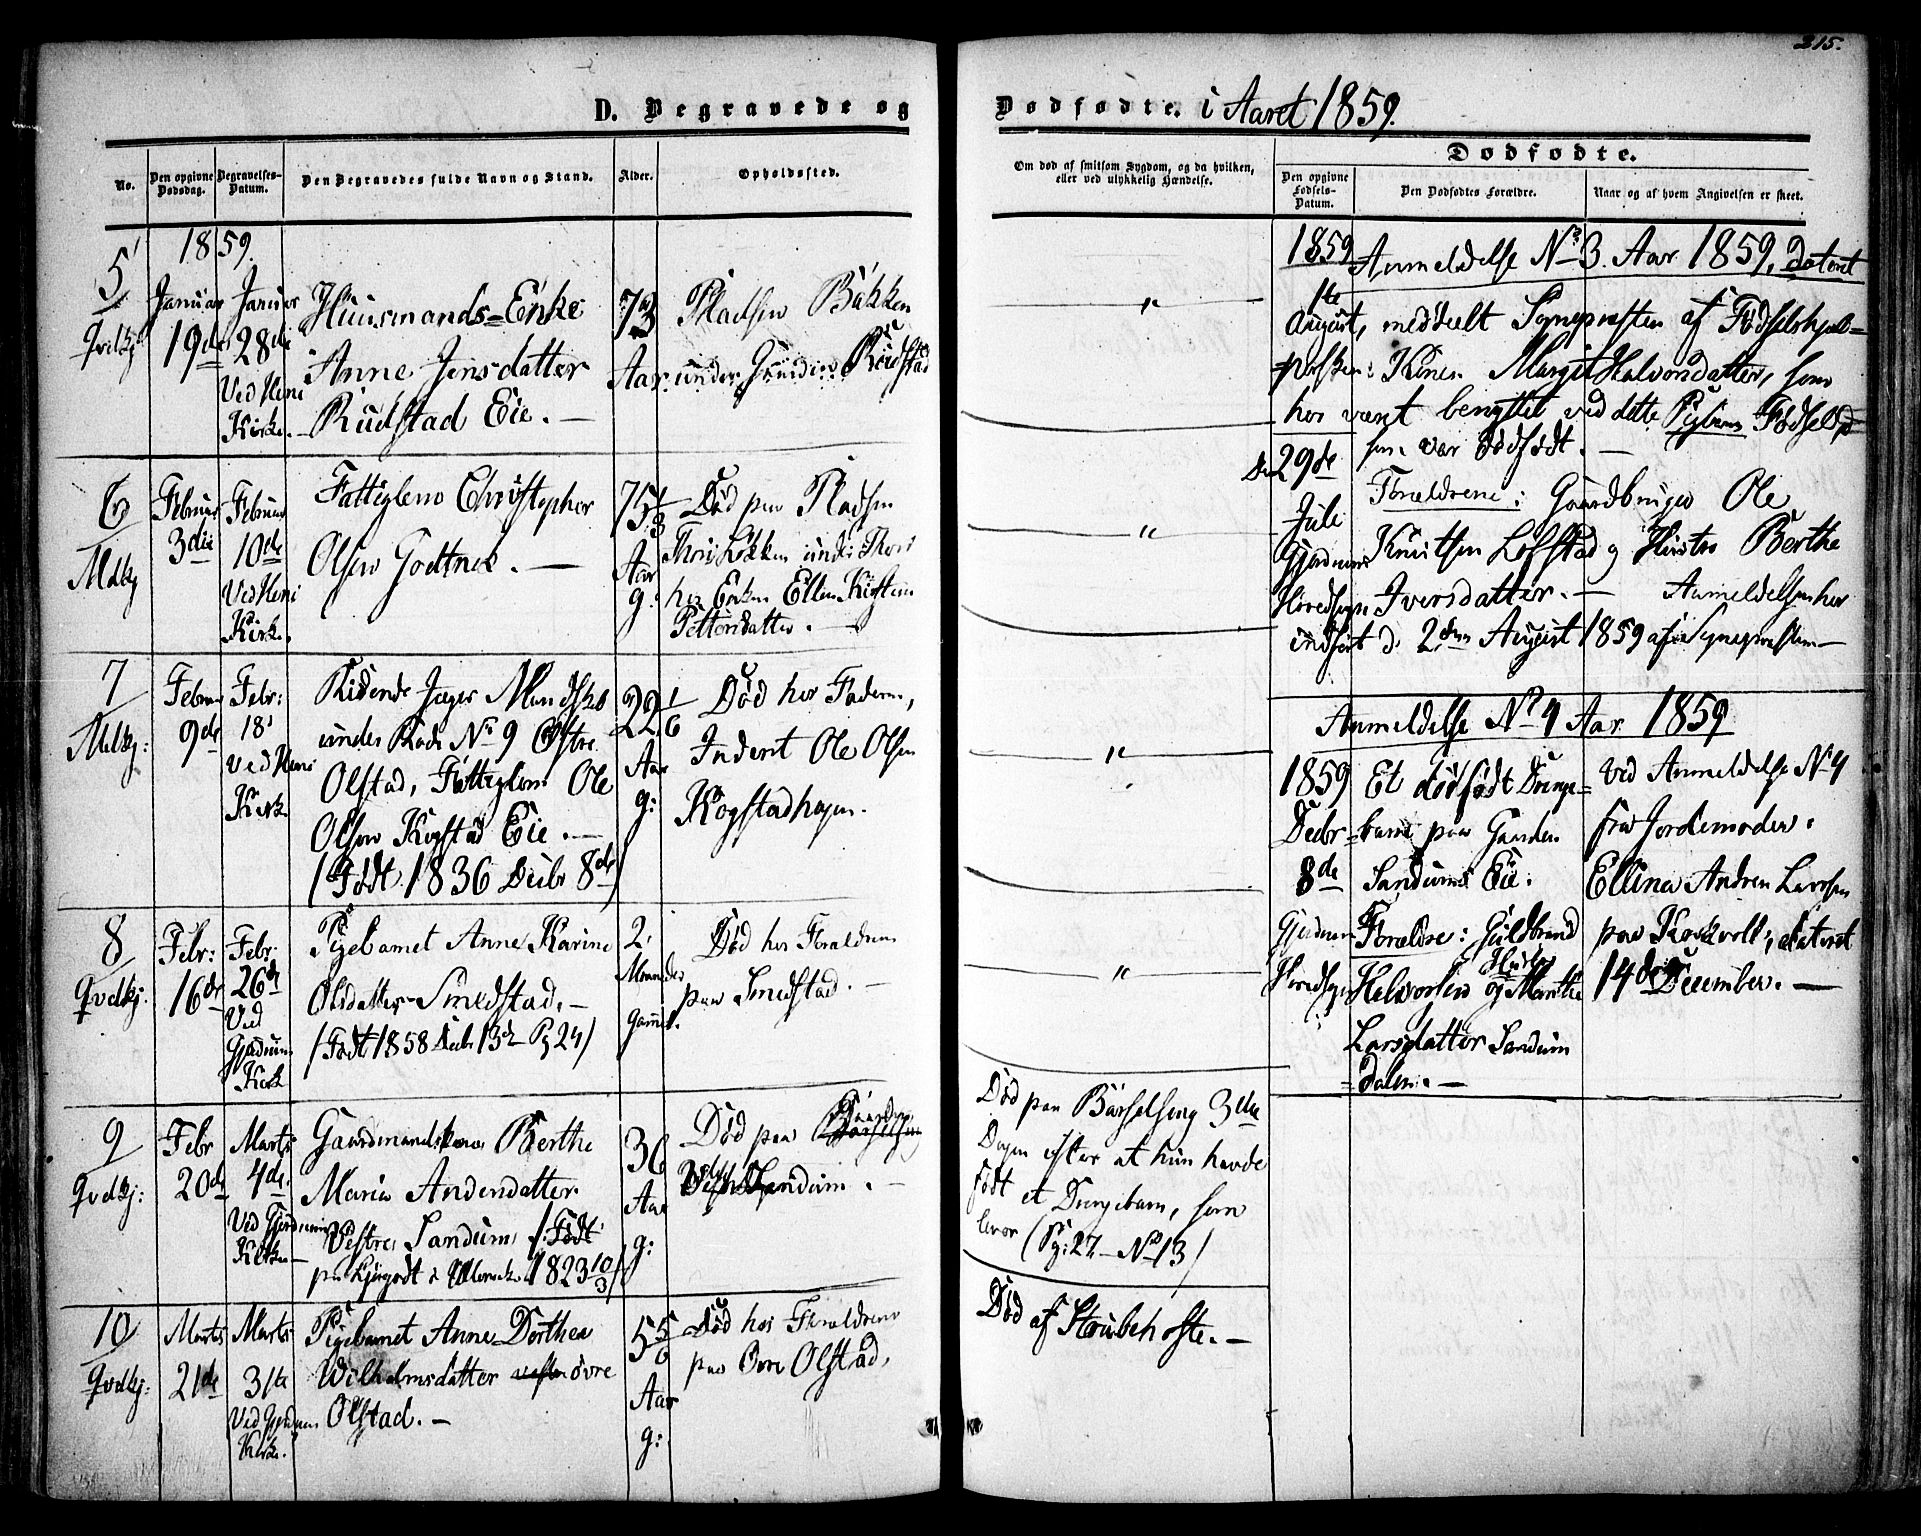 315.
D. Begravede og
Dødfødte. i Aaret 1859.
No.
Den opgivne Dødsdag.
Begravelses-Datum.
Den Begravedes fulde Navn og Stand.
Alder.
Opholdssted.
Om død af smitsom Sygdom, og da hvilken,
eller ved ulykkelig Hændelse.
Dødfødte.
Den opgivne Fødsels-Datum.
Den Dødfødtes Forældre.
Naar og af hvem Angivelsen er skeet.
1859.
5
Qvdkj
Januar
19de
Januar
28de
Ved Heni
Kirke.
Huusmands-Enke
Anne Jensdatter
Rudstad Eie. —
73
Aar
Pladsen Bakken
under Rudstad
"
6
Mdkj
Februar
3die
Februar
10de
Ved Heni
Kirke.
Fattiglem Christopher
Olsen —
75
Aar
g:
Død paa Pladsen
under
hos Enken Ellen Kirstine
Pettersdatter. —
"
7
Mdkj:
Februar
9de
Febr:
18
Ved Heni
Kirk
Ridende Jæger Mundsko
under Rode No 9 Østre
Olstad, Fattiglem Ole
Olsen Kogstad Eie. —
/Født 1836 Decbr 8de/
22 1/6
Aar
g:
Død hos Faderen,
Inderst Ole Olsen
Kogstadhagen.
"
8
Qvdkj:
Febr:
16de
Febr.
26de
Ved
Gjerdrum
Kirk
Pigebarnet Anne Karine
Olsdatter Smedstad. —
/Født 1858 Decbr 13de Pg 24/
2
Maaneder
gammel.
Død hos Forældrene
paa Smedstad. —
"
9
Qvdkj:
Febr
20de
Marts
4de.
Ved Gjerdrums
Kirke —
Gaardmandskone Berthe
Maria Andersdatter
Vestre Sandum /Født
1823 10/3/
36
Aar
g:
Død paa
Sandum. —
Død paa Barselseng 3die
Dagen efter at hun havde
født et Drengebarn, som
lever (Pg: 27 — No 13/
10
Qvdkj:
Marts
21de
Marts
31te
Ved Gjerdrum
Kirke.
Pigebarnet Anne Dorthea
Wilhelmsdatter øvre
Olstad. —
5 5/6
Aar
g:
Død hos Forældrene
paa Øvre Olstad,
Død af Strubehoste. —
1859
Anmeldelse No 3. Aar 1859, dateret
1ste
August, meddeelt Sognepræsten af Fødselshjæl-
persken: Konen Margit Halvorsdatter, som
har været benyttet ved dette Pigebarns Fødsel,
som var dødfødt. —
Den 29de
Juli
Gjerdrums
Hovedsogn
Forældrene: Gaardbruger Ole
Knutsen Lofstad og Hustro Berthe
Iversdatter. — Anmeldelsen her
indført d. 2den August 1859 af Sognepræsten —
Anmeldelse No 4 Aar 1859
1859
Decbr
8de
Gjerdrum
Hovedsogn
Et dødfødt Drenge-
barn paa Gaarden
Sandums Eie.
Forældre: Guldbrand
Halvorsen og Hustro Marthe
Larsdatter Sandum
dalen. —
Ved Anmeldelse No 4
fra Jordemoder
Ellina Andrea Larsen
paa Kokvoll, dateret
14de December. —